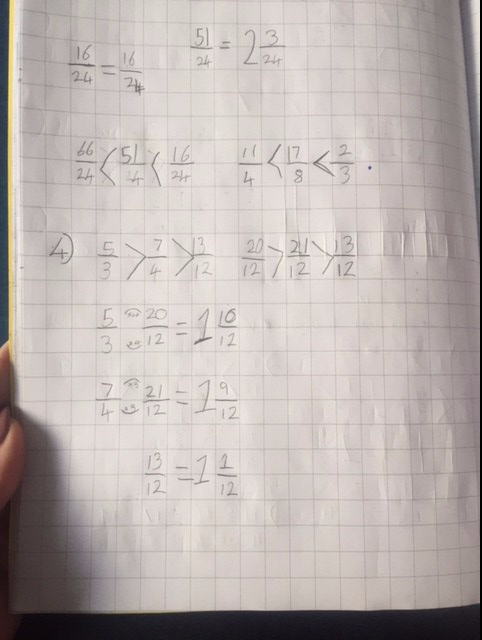 16/24 = 16/24 51/24 = 2 3/24
66/24 < 51/4 < 16/24 11/4 < 17/8 < 2/3 .
4) 5/3 > 7/4 > 13/12 20/12 > 21/12 > 13/12
5/3 20/12 = 1 10/12
7/4 21/12 = 1 9/12
13/12 = 1 1/12